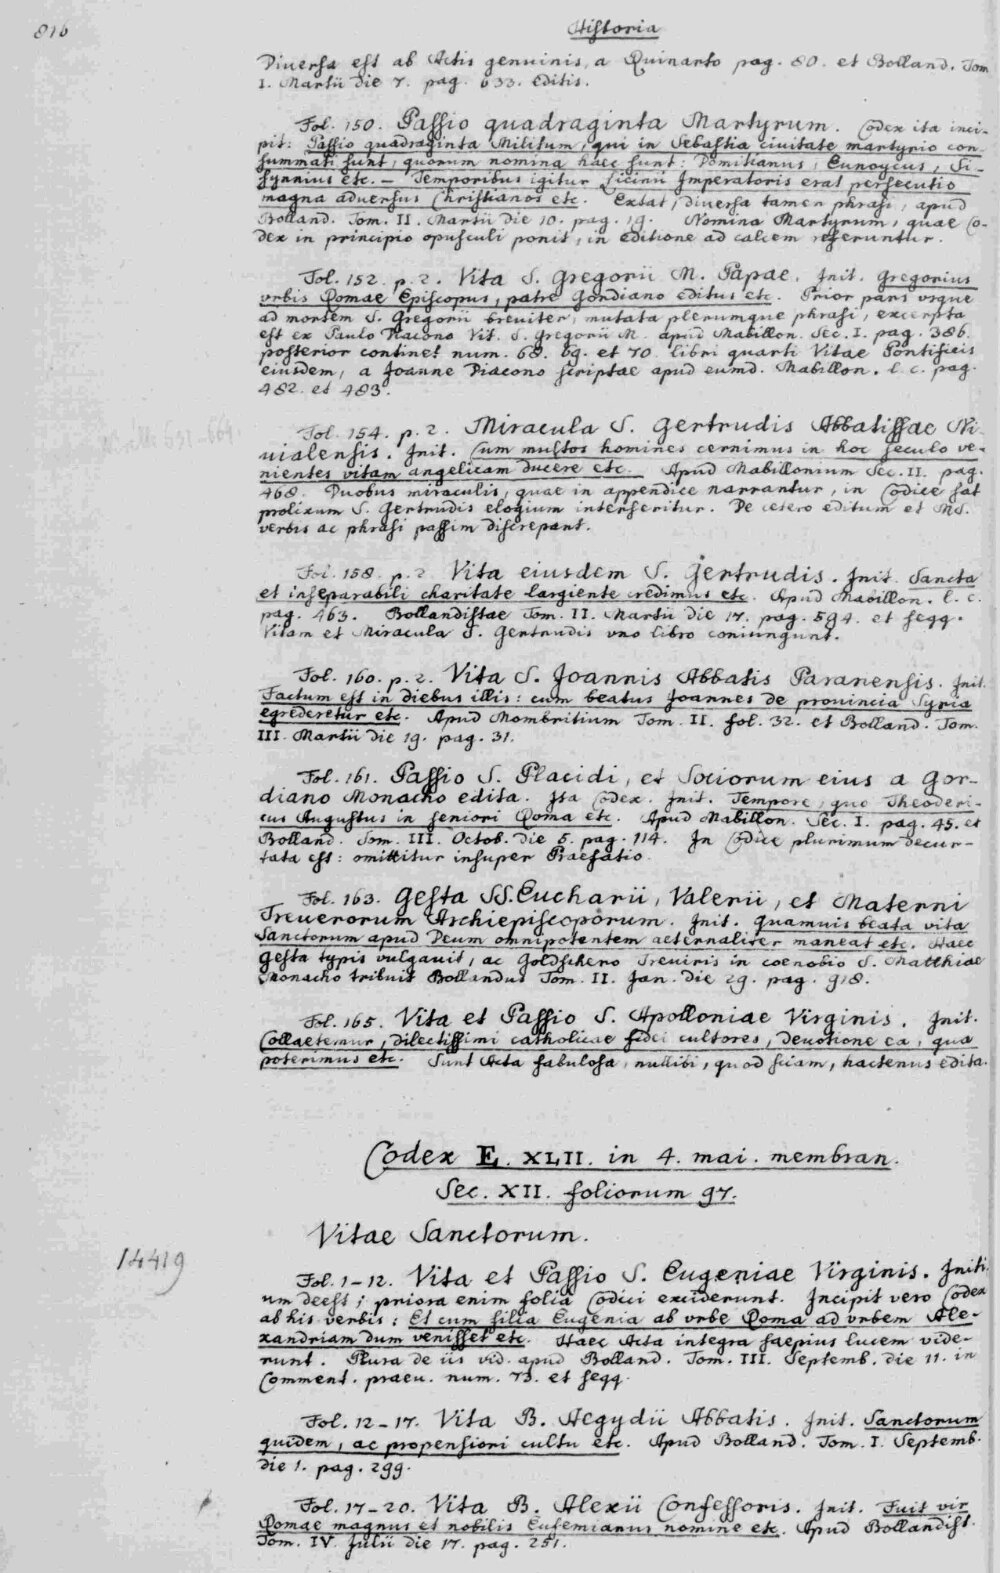 816
Historia
Diuersa est ab Actis genuinis, a Ruinarto pag. 80. et Bolland. Tom
I. Martii die 7. pag. 633. editis.
Fol. 150. Passio quadraginta Martyrum. Codex ita inci-
pit: Passio quadraginta Militum, qui in Sebastia ciuitate martyrio con-
summati sunt, quorum nomina haec sunt: Domitianus, Eunoycus, Si-
synnius etc. — Temporibus igitur Licinii Imperatoris erat persecutio
magna aduersus Christianos etc. Extat, diuersa tamen phrasi, apud
Bolland. Tom. II. Martii die 10. pag. 19. Nomina Martyrum, quae Co-
dex in principio opusculi ponit, in editione ad calcem referuntur.
Fol. 152. p. 2. Vita S. Gregorii M. Papae. Init. Gregorius
vrbis Romae Episcopus, patre Gordiano editus etc. Prior pars vsque
ad mortem S. Gregorii breuiter, mutata plerumque phrasi, excerpta
est ex Paulo Diacono Vit. S. Gregorii M. apud Mabillon. Sec. I. pag. 386.
posterior continet num. 68. 69. et 70. libri quarti Vitae Pontificis
eiusdem, a Joanne Diacono scriptae apud eumd. Mabillon. l. c. pag.
482. et 483.
Fol. 154. p. 2. Miracula S. Gertrudis Abbatissae Ni-
uialensis. Init. Cum multos homines cernimus in hoc seculo ve-
nientes vitam angelicam ducere etc. Apud Mabillonium Sec. II. pag.
468. Duobus miraculis, quae in appendice narrantur, in Codice sat
prolixum S. Gertrudis elogium interseritur. De cetero editum et MS.
verbis ac phrasi passim discrepant.
Fol. 158. p. 2 Vita eiusdem S. Gertrudis. Init. Sancta
et inseparabili charitate largiente credimus etc. Apud Mabillon. l. c.
pag. 463. Bollandistae Tom. II. Martii die 17. pag. 594. et seqq.
Vitam et Miracula S. Gertrudis vno libro coniungunt.
Fol. 160. p. 2. Vita S. Joannis Abbatis Paranensis. Init.
Factum est in diebus illis: cum beatus Joannes de prouincia Syria
egrederetur etc. Apud Mombritium Tom. II. fol. 32. et Bolland. Tom.
III. Martii die 19. pag. 31.
Fol. 161. Passio S. Placidi, et Sociorum eius a Gor-
diano Monacho edita. Ita Codex. Init. Tempore, quo Theoderi-
cus Augustus in seniori Roma etc. Apud Mabillon. Sec. I. pag. 45. et
Bolland. Tom. III. Octob. die 5. pag. 114. In Codice plurimum decur-
tata est: omittitur insuper Praefatio.
Fol. 163. Gesta SS. Eucharii, Valerii, et Materni
Treuerorum Archiepiscoporum. Init. Quamuis beata vita
Sanctorum apud Deum omnipotentem aeternaliter maneat etc. Haec
gesta typis vulgauit, ac Goldschero Treuiris in coenobio S. Matthiae
Monacho tribuit Bollandus Tom. II. Jan. die 29. pag. 918.
Fol. 165. Vita et Passio S. Apolloniae Virginis. Init.
Collaetemur, dilectissimi catholicae fidei cultores, deuotione ea, qua
poterimus etc. Sunt Acta fabulosa, nullibi, quod sciam, hactenus edita.
Codex E. XLII. in 4. mai. membran.
Sec. XII. foliorum 97.
Vitae Sanctorum.
14419
Fol. 1-12. Vita et Passio S. Eugeniae Virginis. Initi-
um deest; priora enim folia Codici exciderunt. Incipit vero Codex
ab his verbis: Et cum filia Eugenia ab vrbe Roma ad vrbem Ale-
xandriam dum venisset etc. Haec Acta integra saepius lucem vide-
runt. Plura de iis vid. apud Bolland. Tom. III. Septemb. die 11. in
Comment. praeu. num. 73. et seqq.
Fol. 12-17. Vita B. Aegydii Abbatis. Init. Sanctorum
quidem, ac propensiori cultu etc. Apud Bolland. Tom. I. Septemb.
die 1. pag. 299.
Fol. 17-20. Vita B. Alexii Confessoris. Init. Fuit vir
Romae magnus et nobilis Eufemianus nomine etc. Apud Bollandist.
Tom. IV. Julii die 17. pag. 251.